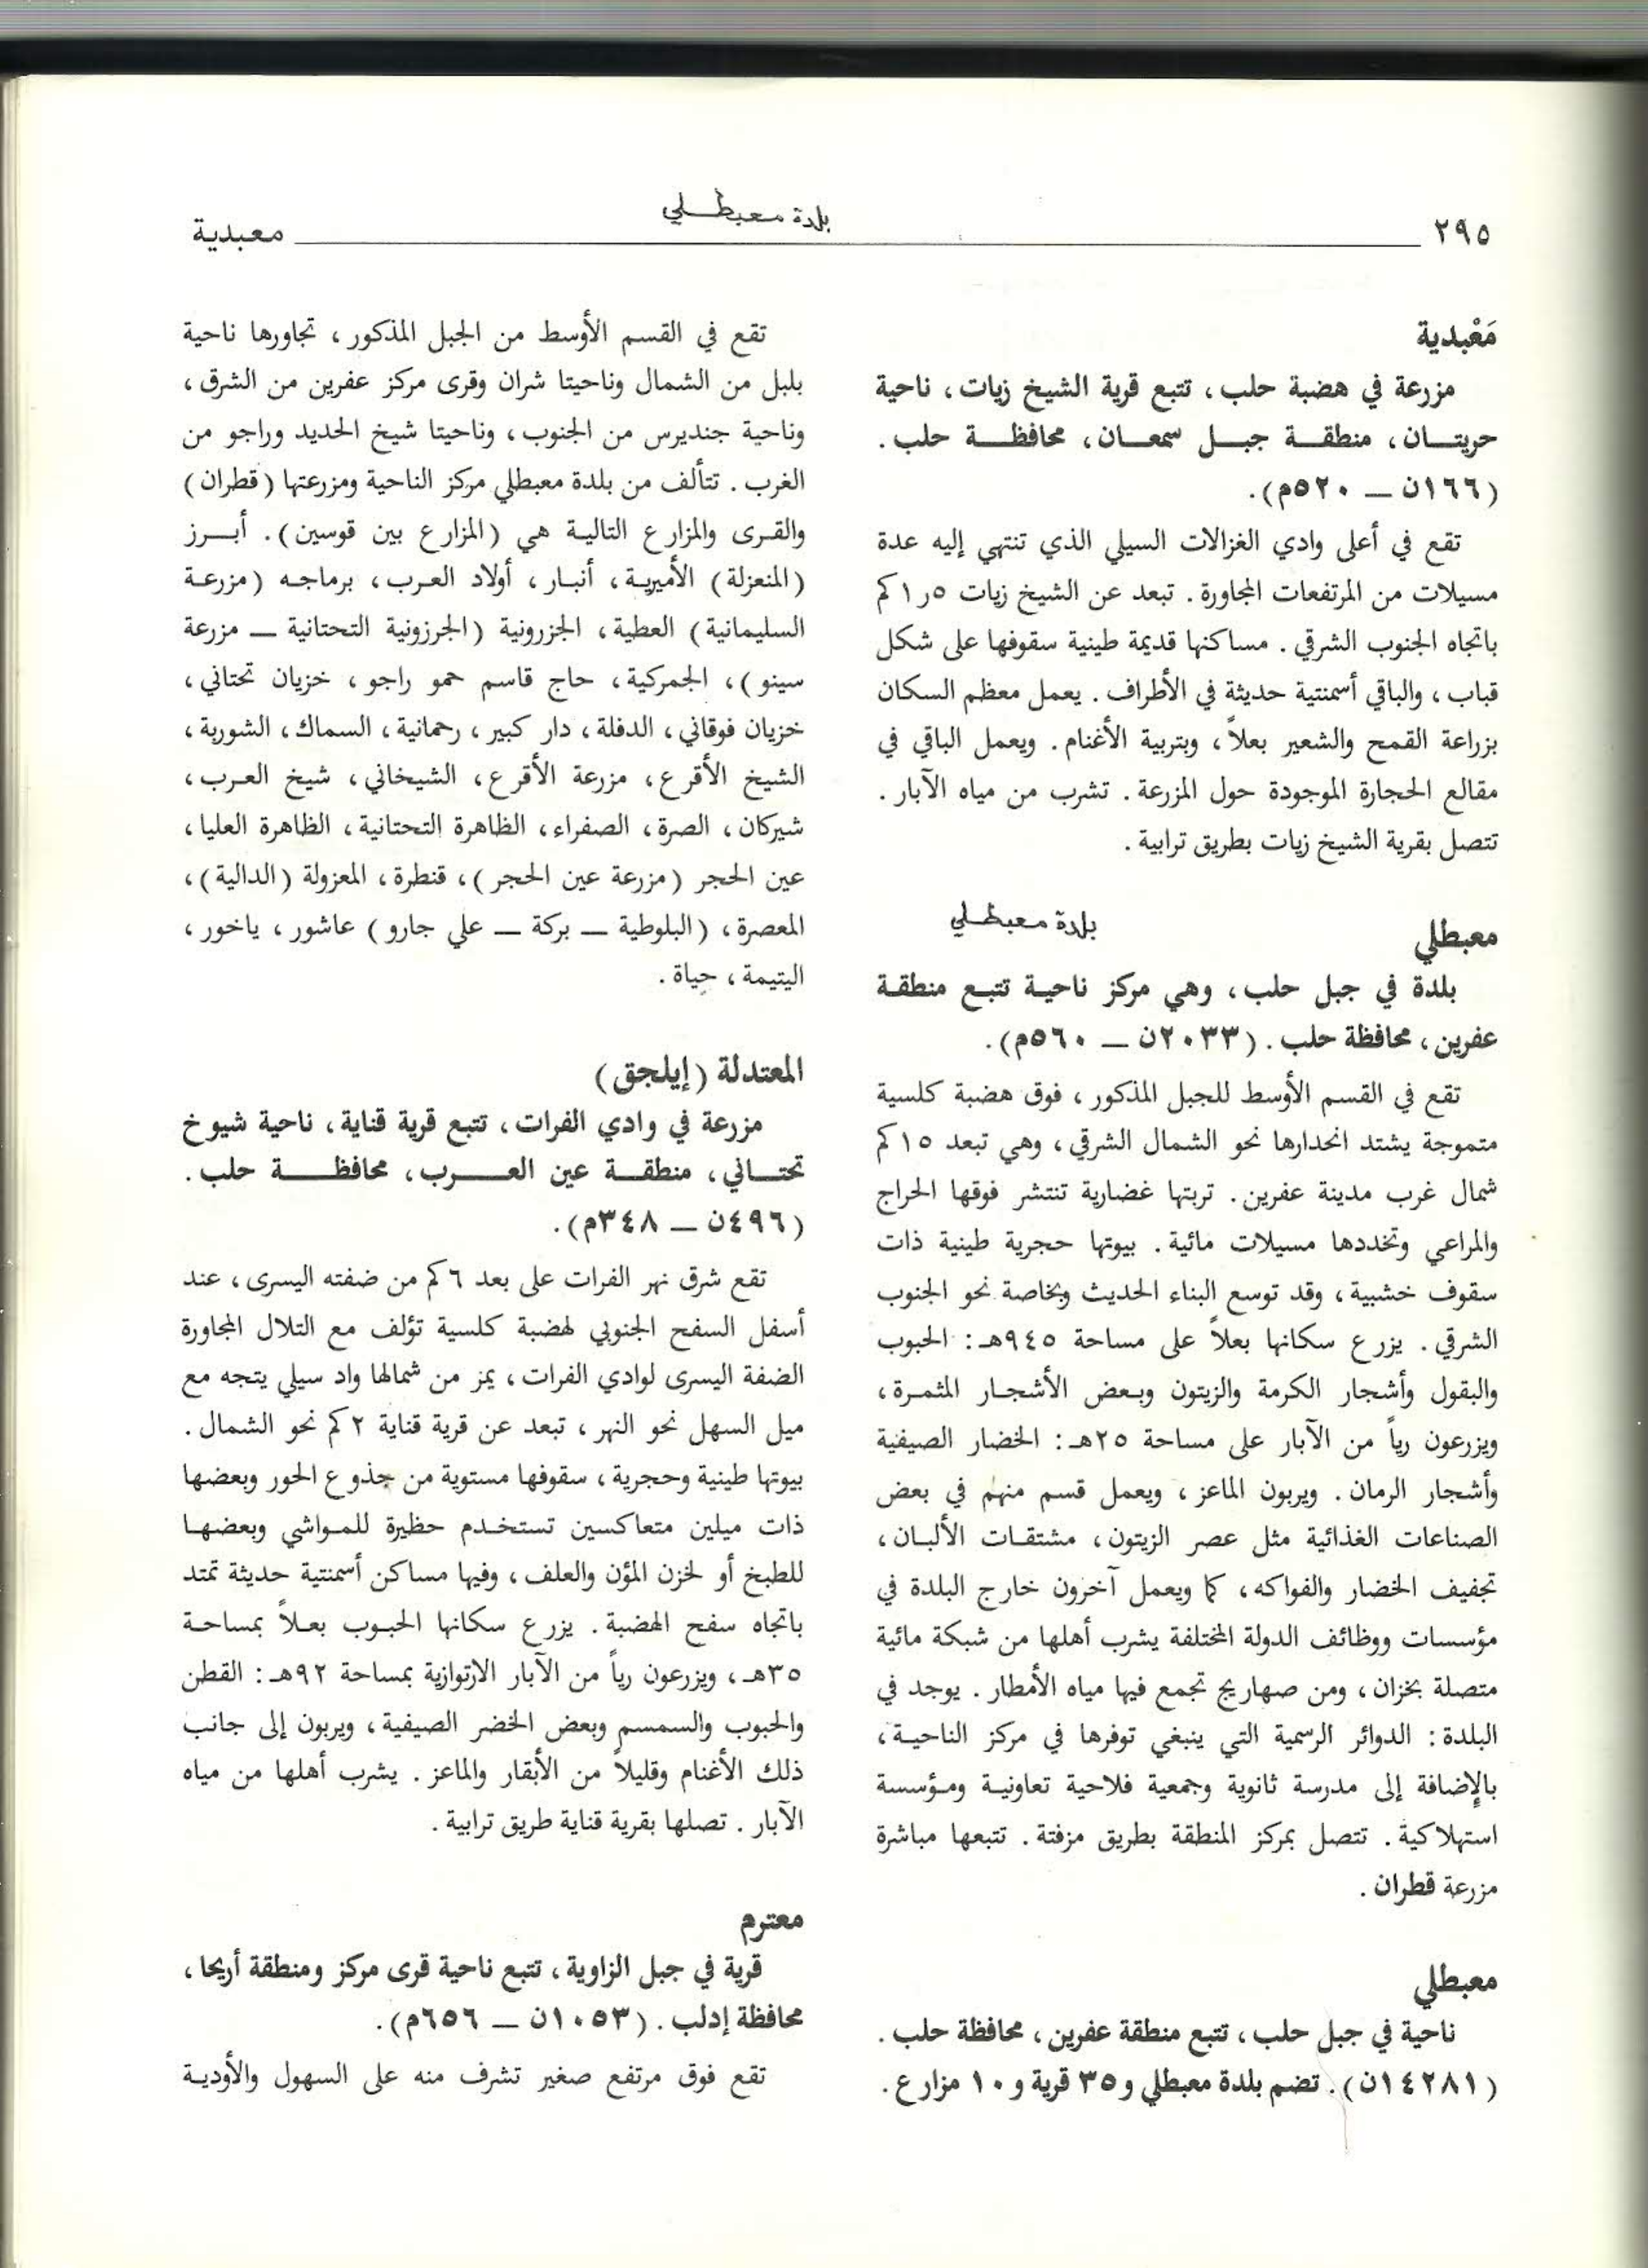 بلدة معبطلي
٢٩٥ معبدية
مَعْبدية
مزرعة في هضبة حلب، تتبع قرية الشيخ زيات، ناحية
حريتان، منطقة جبل سمعان، محافظة حلب.
(١٦٦ن — ٥٢٠م).
تقع في أعلى وادي الغزالات السيلي الذي تنتهي إليه عدة
مسيلات من المرتفعات المجاورة. تبعد عن الشيخ زيات ٥ر١ كم
باتجاه الجنوب الشرقي. مساكنها قديمة طينية سقوفها على شكل
قباب، والباقي أسمنتية حديثة في الأطراف. يعمل معظم السكان
بزراعة القمح والشعير بعلاً، وبتربية الأغنام. ويعمل الباقي في
مقالع الحجارة الموجودة حول المزرعة. تشرب من مياه الآبار.
تتصل بقرية الشيخ زيات بطريق ترابية.
معبطلي بلدة معبطلي
بلدة في جبل حلب، وهي مركز ناحية تتبع منطقة
عفرين، محافظة حلب. (٢٠٣٣ن — ٥٦٠م).
تقع في القسم الأوسط للجبل المذكور، فوق هضبة كلسية
متموجة يشتد انحدارها نحو الشمال الشرقي، وهي تبعد ١٥ كم
شمال غرب مدينة عفرين. تربتها غضارية تنتشر فوقها الحراج
والمراعي وتخددها مسيلات مائية. بيوتها حجرية طينية ذات
سقوف خشبية، وقد توسع البناء الحديث وبخاصة نحو الجنوب
الشرقي. يزرع سكانها بعلاً على مساحة ٩٤٥هـ: الحبوب
والبقول وأشجار الكرمة والزيتون وبعض الأشجار المثمرة،
ويزرعون رياً من الآبار على مساحة ٢٥هـ: الخضار الصيفية
وأشجار الرمان. ويربون الماعز، ويعمل قسم منهم في بعض
الصناعات الغذائية مثل عصر الزيتون، مشتقات الألبان،
تجفيف الخضار والفواكه، كما ويعمل آخرون خارج البلدة في
مؤسسات ووظائف الدولة المختلفة يشرب أهلها من شبكة مائية
متصلة بخزان، ومن صهاريج تجمع فيها مياه الأمطار. يوجد في
البلدة: الدوائر الرسمية التي ينبغي توفرها في مركز الناحية،
بالإضافة إلى مدرسة ثانوية وجمعية فلاحية تعاونية ومؤسسة
استهلاكية. تتصل بمركز المنطقة بطريق مزفتة. تتبعها مباشرة
مزرعة قطران.
معبطلي
ناحية في جبل حلب، تتبع منطقة عفرين، محافظة حلب.
(١٤٢٨١ن). تضم بلدة معبطلي و٣٥ قرية و١٠ مزارع.
تقع في القسم الأوسط من الجبل المذكور، تجاورها ناحية
بلبل من الشمال وناحيتا شران وقرى مركز عفرين من الشرق،
وناحية جنديرس من الجنوب، وناحيتا شيخ الحديد وراجو من
الغرب. تتألف من بلدة معبطلي مركز الناحية ومزرعتها (قطران)
والقرى والمزارع التالية هي (المزارع بين قوسين). أبرز
(المنعزلة) الأميرية، أنبار، أولاد العرب، برماجه (مزرعة
السليمانية) العطية، الجزرونية (الجرزونية التحتانية — مزرعة
سينو)، الجمركية، حاج قاسم حمو راجو، خزيان تحتاني،
خزيان فوقاني، الدفلة، دار كبير، رحمانية، السماك، الشوربة،
الشيخ الأقرع، مزرعة الأقرع، الشيخاني، شيخ العرب،
شيركان، الصرة، الصفراء، الظاهرة التحتانية، الظاهرة العليا،
عين الحجر (مزرعة عين الحجر)، قنطرة، المعزولة (الدالية)،
المعصرة، (البلوطية — بركة — علي جارو) عاشور، ياخور،
اليتيمة، حياة.
المعتدلة (إيلجق)
مزرعة في وادي الفرات، تتبع قرية قناية، ناحية شيوخ
تحتاني، منطقة عين العرب، محافظة حلب.
(٤٩٦ن — ٣٤٨م).
تقع شرق نهر الفرات على بعد ٦ كم من ضفته اليسرى، عند
أسفل السفح الجنوبي لهضبة كلسية تؤلف مع التلال المجاورة
الضفة اليسرى لوادي الفرات، يمز من شمالها واد سيلي يتجه مع
ميل السهل نحو النهر، تبعد عن قرية قناية ٢ كم نحو الشمال.
بيوتها طينية وحجرية، سقوفها مستوية من جذوع الحور وبعضها
ذات ميلين متعاكسين تستخدم حظيرة للمواشي وبعضها
للطبخ أو لخزن المؤن والعلف، وفيها مساكن أسمنتية حديثة تمتد
باتجاه سفح الهضبة. يزرع سكانها الحبوب بعلاً بمساحة
٣٥هـ، ويزرعون رياً من الآبار الارتوازية بمساحة ٩٢هـ: القطن
والحبوب والسمسم وبعض الخضر الصيفية، ويربون إلى جانب
ذلك الأغنام وقليلاً من الأبقار والماعز. يشرب أهلها من مياه
الآبار. تصلها بقرية قناية طريق ترابية.
معترم
قرية في جبل الزاوية، تتبع ناحية قرى مركز ومنطقة أريحا،
محافظة إدلب. (١٠٥٣ن — ٦٥٦م).
تقع فوق مرتفع صغير تشرف منه على السهول والأودية